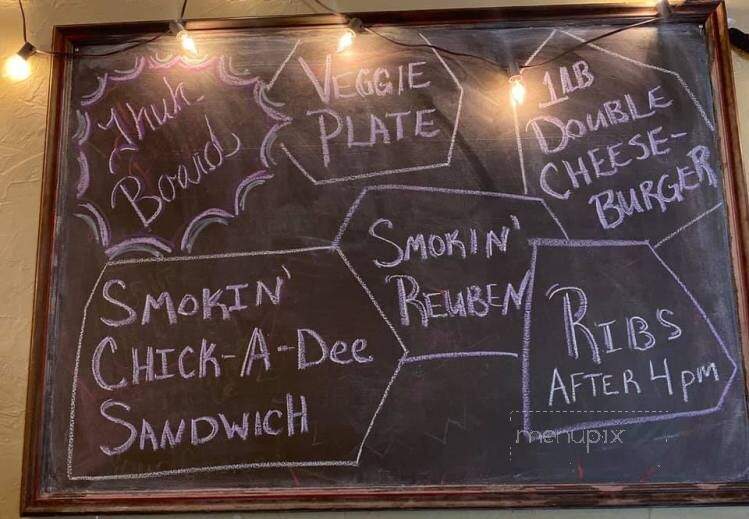 Thuh
Board
VEGGIE
PLATE
1LB
DOUBLE
CHEESE-
BURGER
SMOKIN'
REUBEN
SMOKIN'
CHICK-A-Dee
SANDWICH
RIBS
AFTER 4pm
menupix